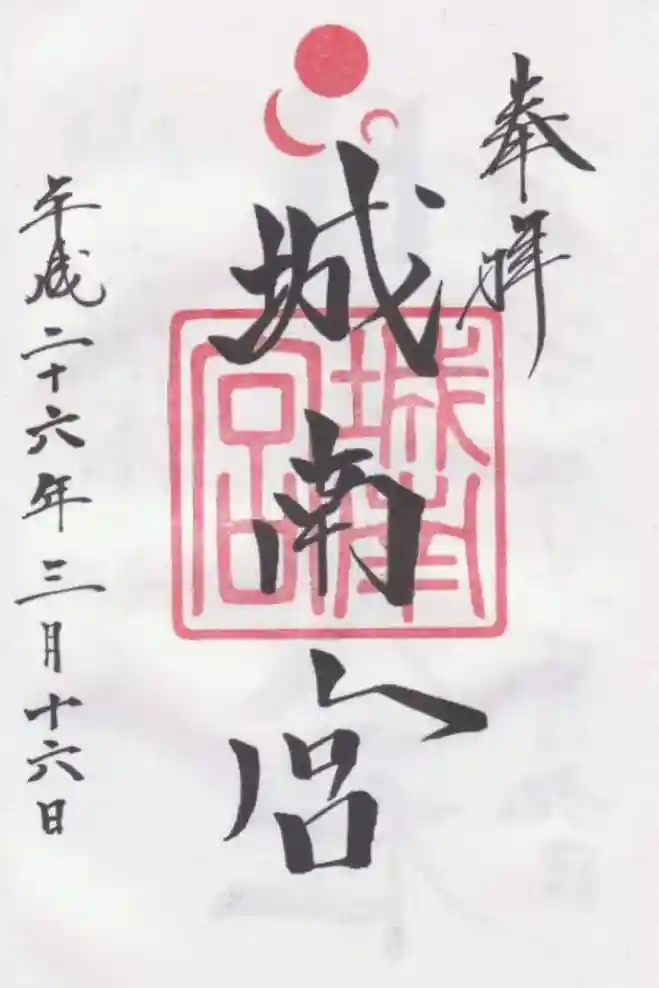 奉拝
城南宮
城南宮
平成二十六年三月十六日